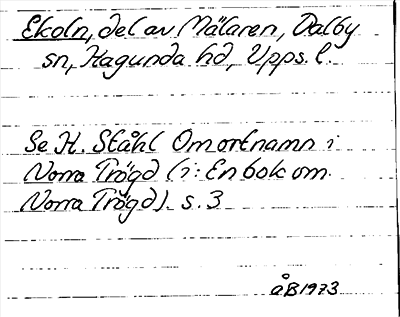 Ekoln, del av Mälaren, Dalby
sn, Hagunda hd, Upps. l.
Se H. Ståhl Om ortnamn i
Norra Trögd (i: En bok om
Norra Trögd) s. 3
ÅB 1973